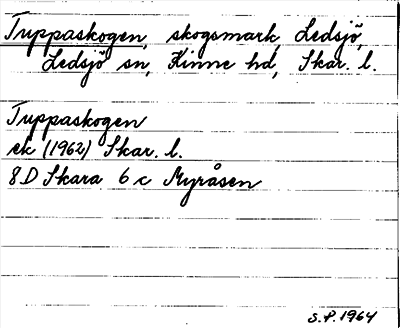 Tuppaskogen, skogsmark, Ledsjö,
Ledsjö sn, Kinne hd, Skar. l.
Tuppaskogen
ek (1962) Skar. l.
8D Skara 6c Myråsen
S.P. 1964